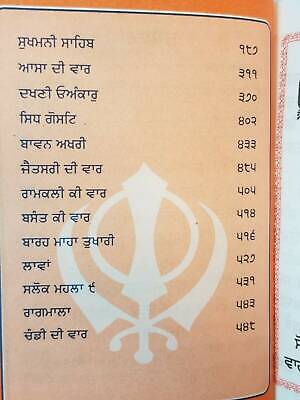 ਸੁਖਮਨੀ ਸਾਹਿਬ ੧੯੭
ਆਸਾ ਦੀ ਵਾਰ ੩੧੧
ਦਖਣੀ ਓਅੰਕਾਰੁ ੩੭੦
ਸਿਧ ਗੋਸਟਿ ੪੦੨
ਬਾਵਨ ਅਖਰੀ ੪੩੩
ਜੈਤਸਰੀ ਦੀ ਵਾਰ ੪੮੫
ਰਾਮਕਲੀ ਕੀ ਵਾਰ ੫੦੫
ਬਸੰਤ ਕੀ ਵਾਰ ੫੧੪
ਬਾਰਹ ਮਾਹਾ ਤੁਖਾਰੀ ੫੧੬
ਲਾਵਾਂ ੫੨੭
ਸਲੋਕ ਮਹਲਾ ੯ ੫੩੧
ਰਾਗਮਾਲਾ ੫੪੩
ਚੰਡੀ ਦੀ ਵਾਰ ੫੪੮